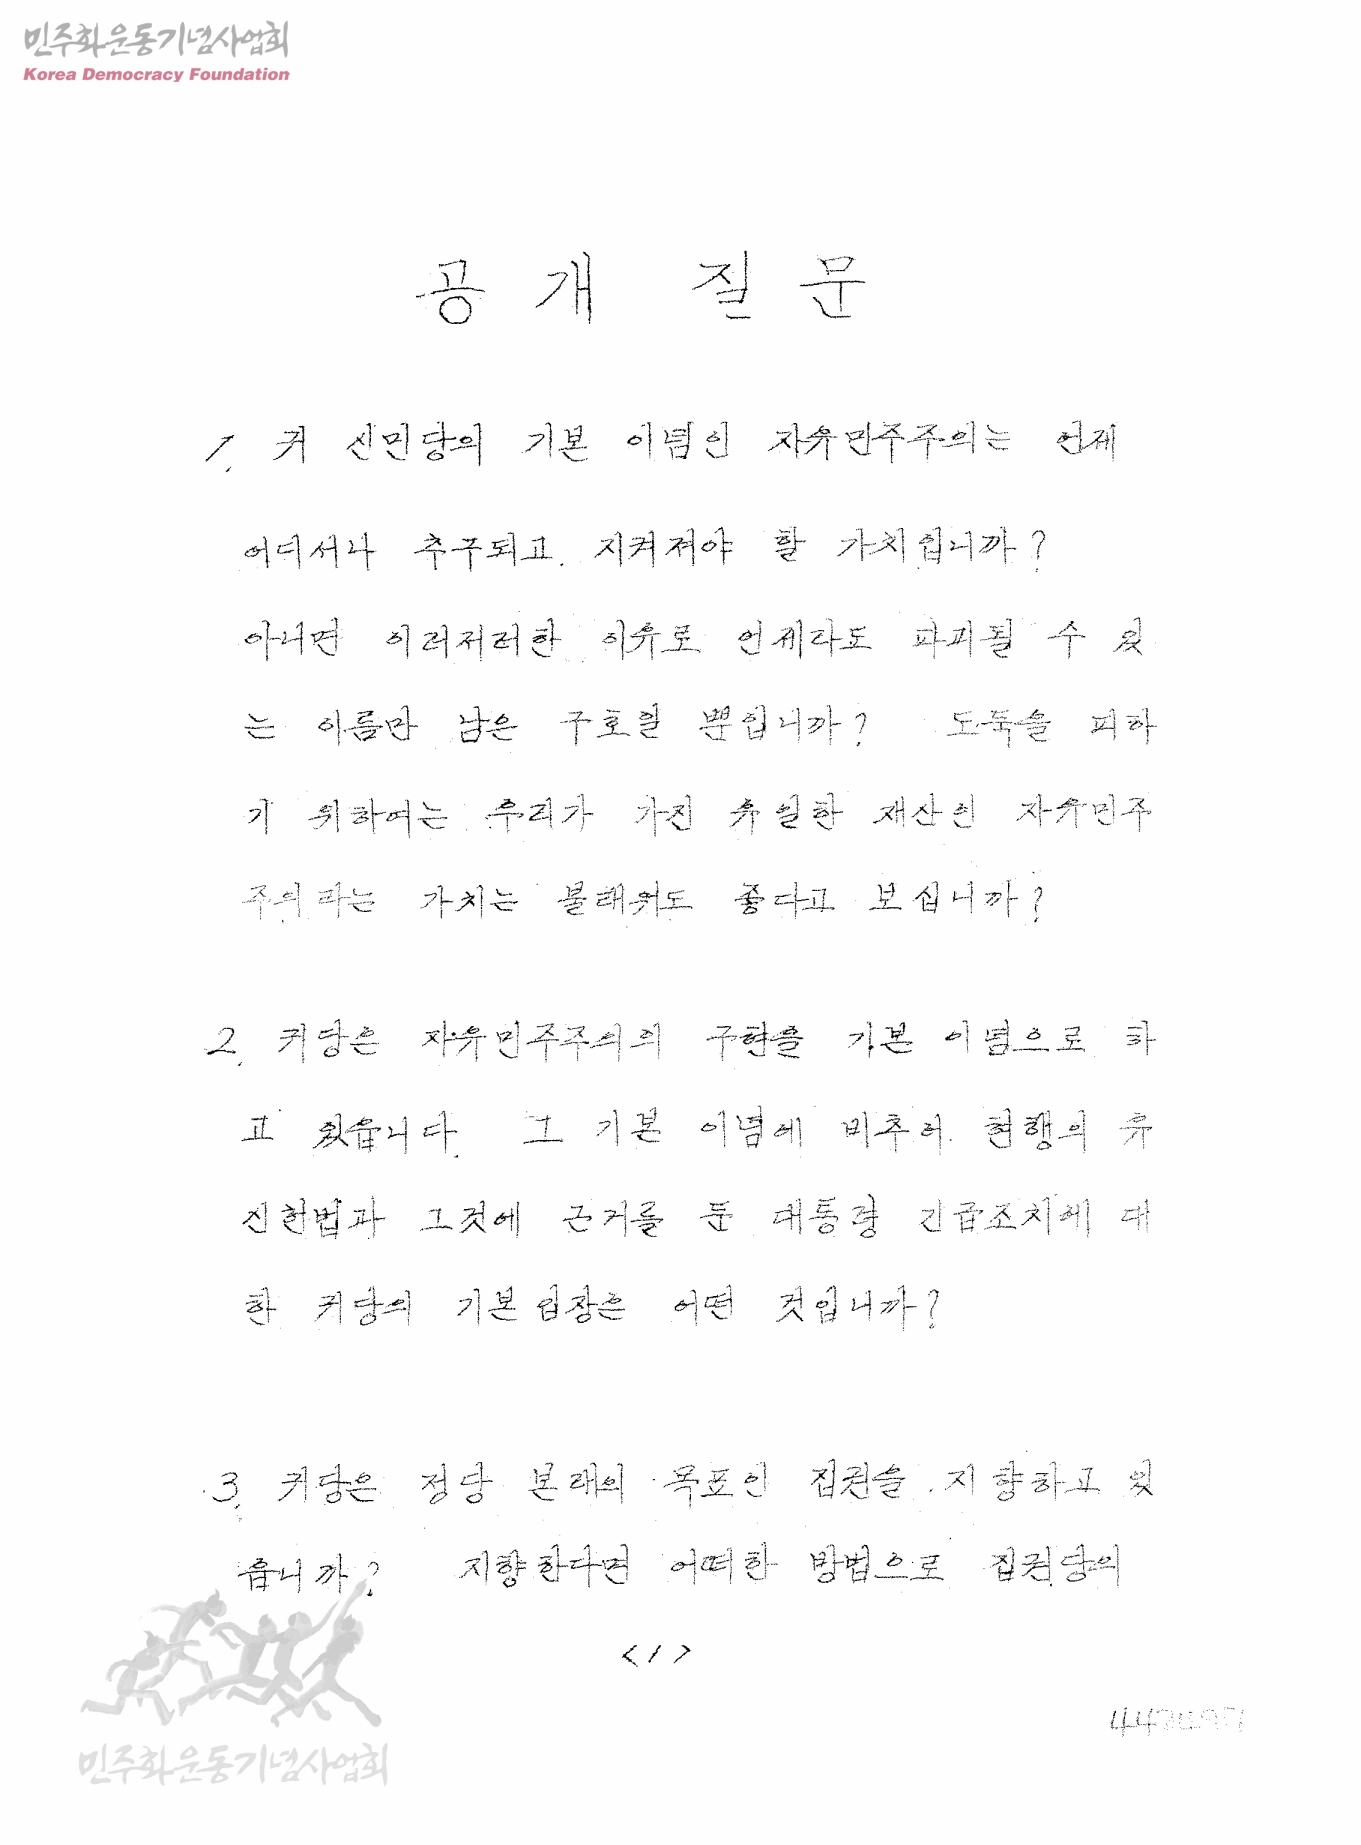 민주화운동기념사업회
Korea Democracy Foundation
공개 질문
1. 귀 신민당의 기본 이념인 자유민주주의는 언제
어디서나 추구되고, 지켜져야 할 가치입니까?
아니면 이러저러한 이유로 언제라도 파괴될 수 있
는 이름만 남은 구호일 뿐입니까? 도둑을 피하
기 위하여는 우리가 가진 유일한 재산인 자유민주
주의라는 가치는 불태워도 좋다고 보십니까?
2. 귀당은 자유민주주의의 구현을 기본 이념으로 하
고 있읍니다. 그 기본 이념에 비추어 현행의 유
신헌법과 그것에 근거를 둔 대통령 긴급조치에 대
한 귀당의 기본 입장은 어떤 것입니까?
3. 귀당은 정당 본래의 목표인 집권을 지향하고 있
읍니까? 지향한다면 어떠한 방법으로 집권당의
<1>
민주화운동기념사업회